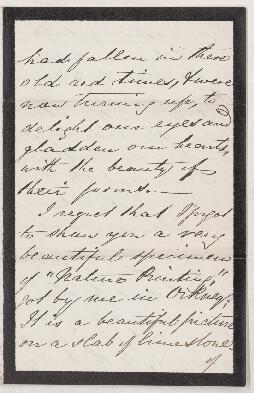 had fallen in those
old red times, & were
now turning up, to
delight our eyes and
gladden our hearts,
with the beauty of
their forms. —
I regret that I forgot
to shew you a very
beautiful specimen
of "Printing,"
got by me in Orkney;
It is a beautiful picture
on a slab of limestone
of